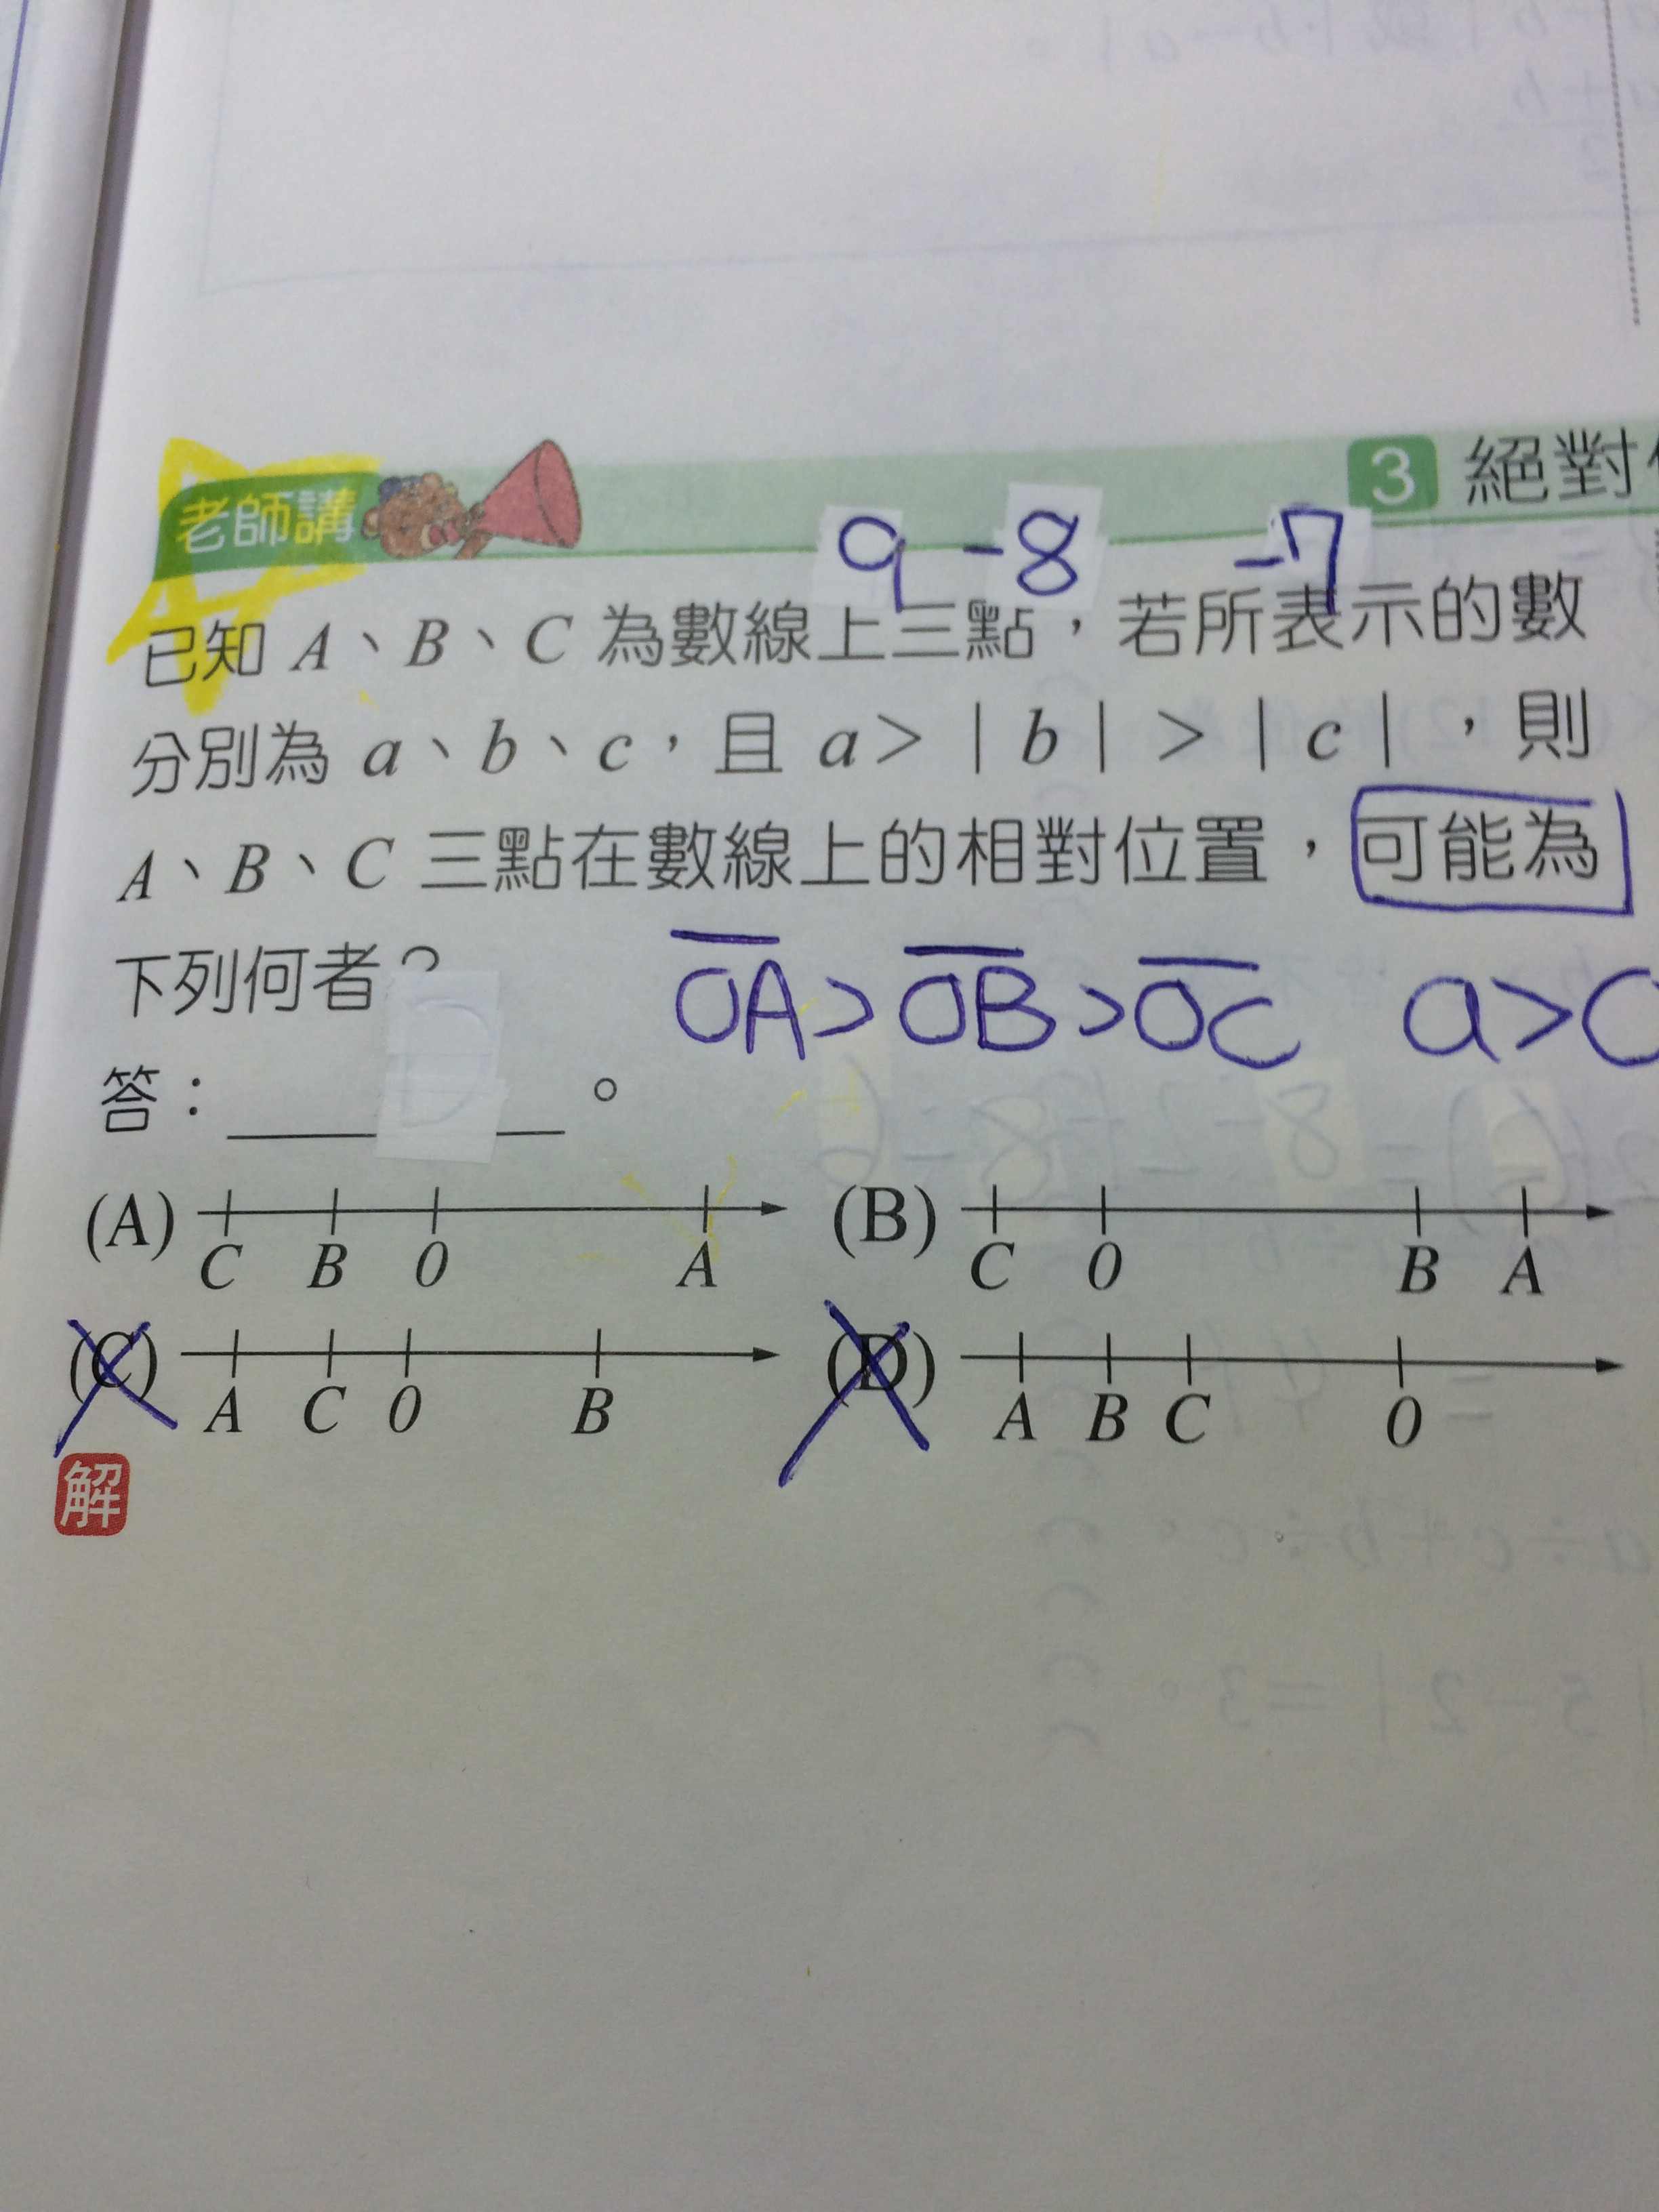 老師講
3 絕對
9 -8 -7
已知 A、B、C 為數線上三點，若所表示的數
分別為 a、b、c，且 a>|b|>|c|，則
A、B、C 三點在數線上的相對位置，可能為
下列何者？
OA>OB>OC a>0
答：______。
(A) C B 0 A
(B) C 0 B A
(C) A C 0 B
(D) A B C 0
解